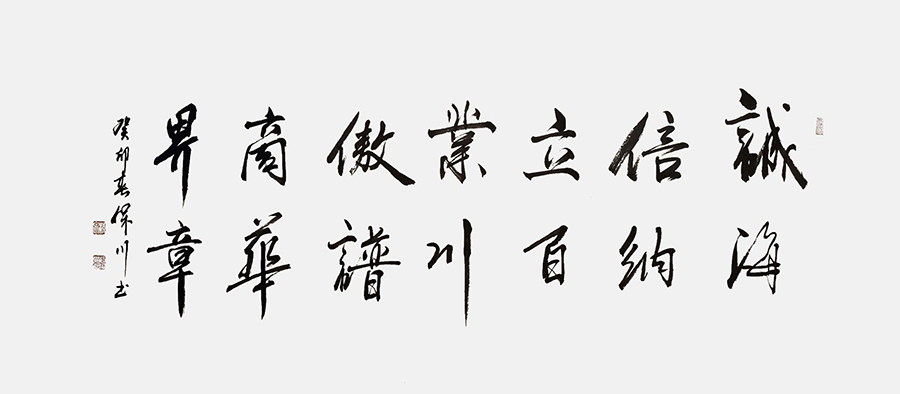 誠信立業傲商界
海納百川譜華章
癸卯春保川书